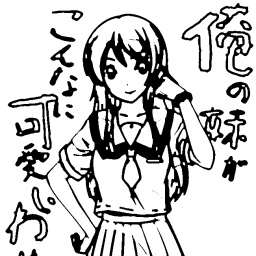 俺の妹が
こんなに
可愛いわ